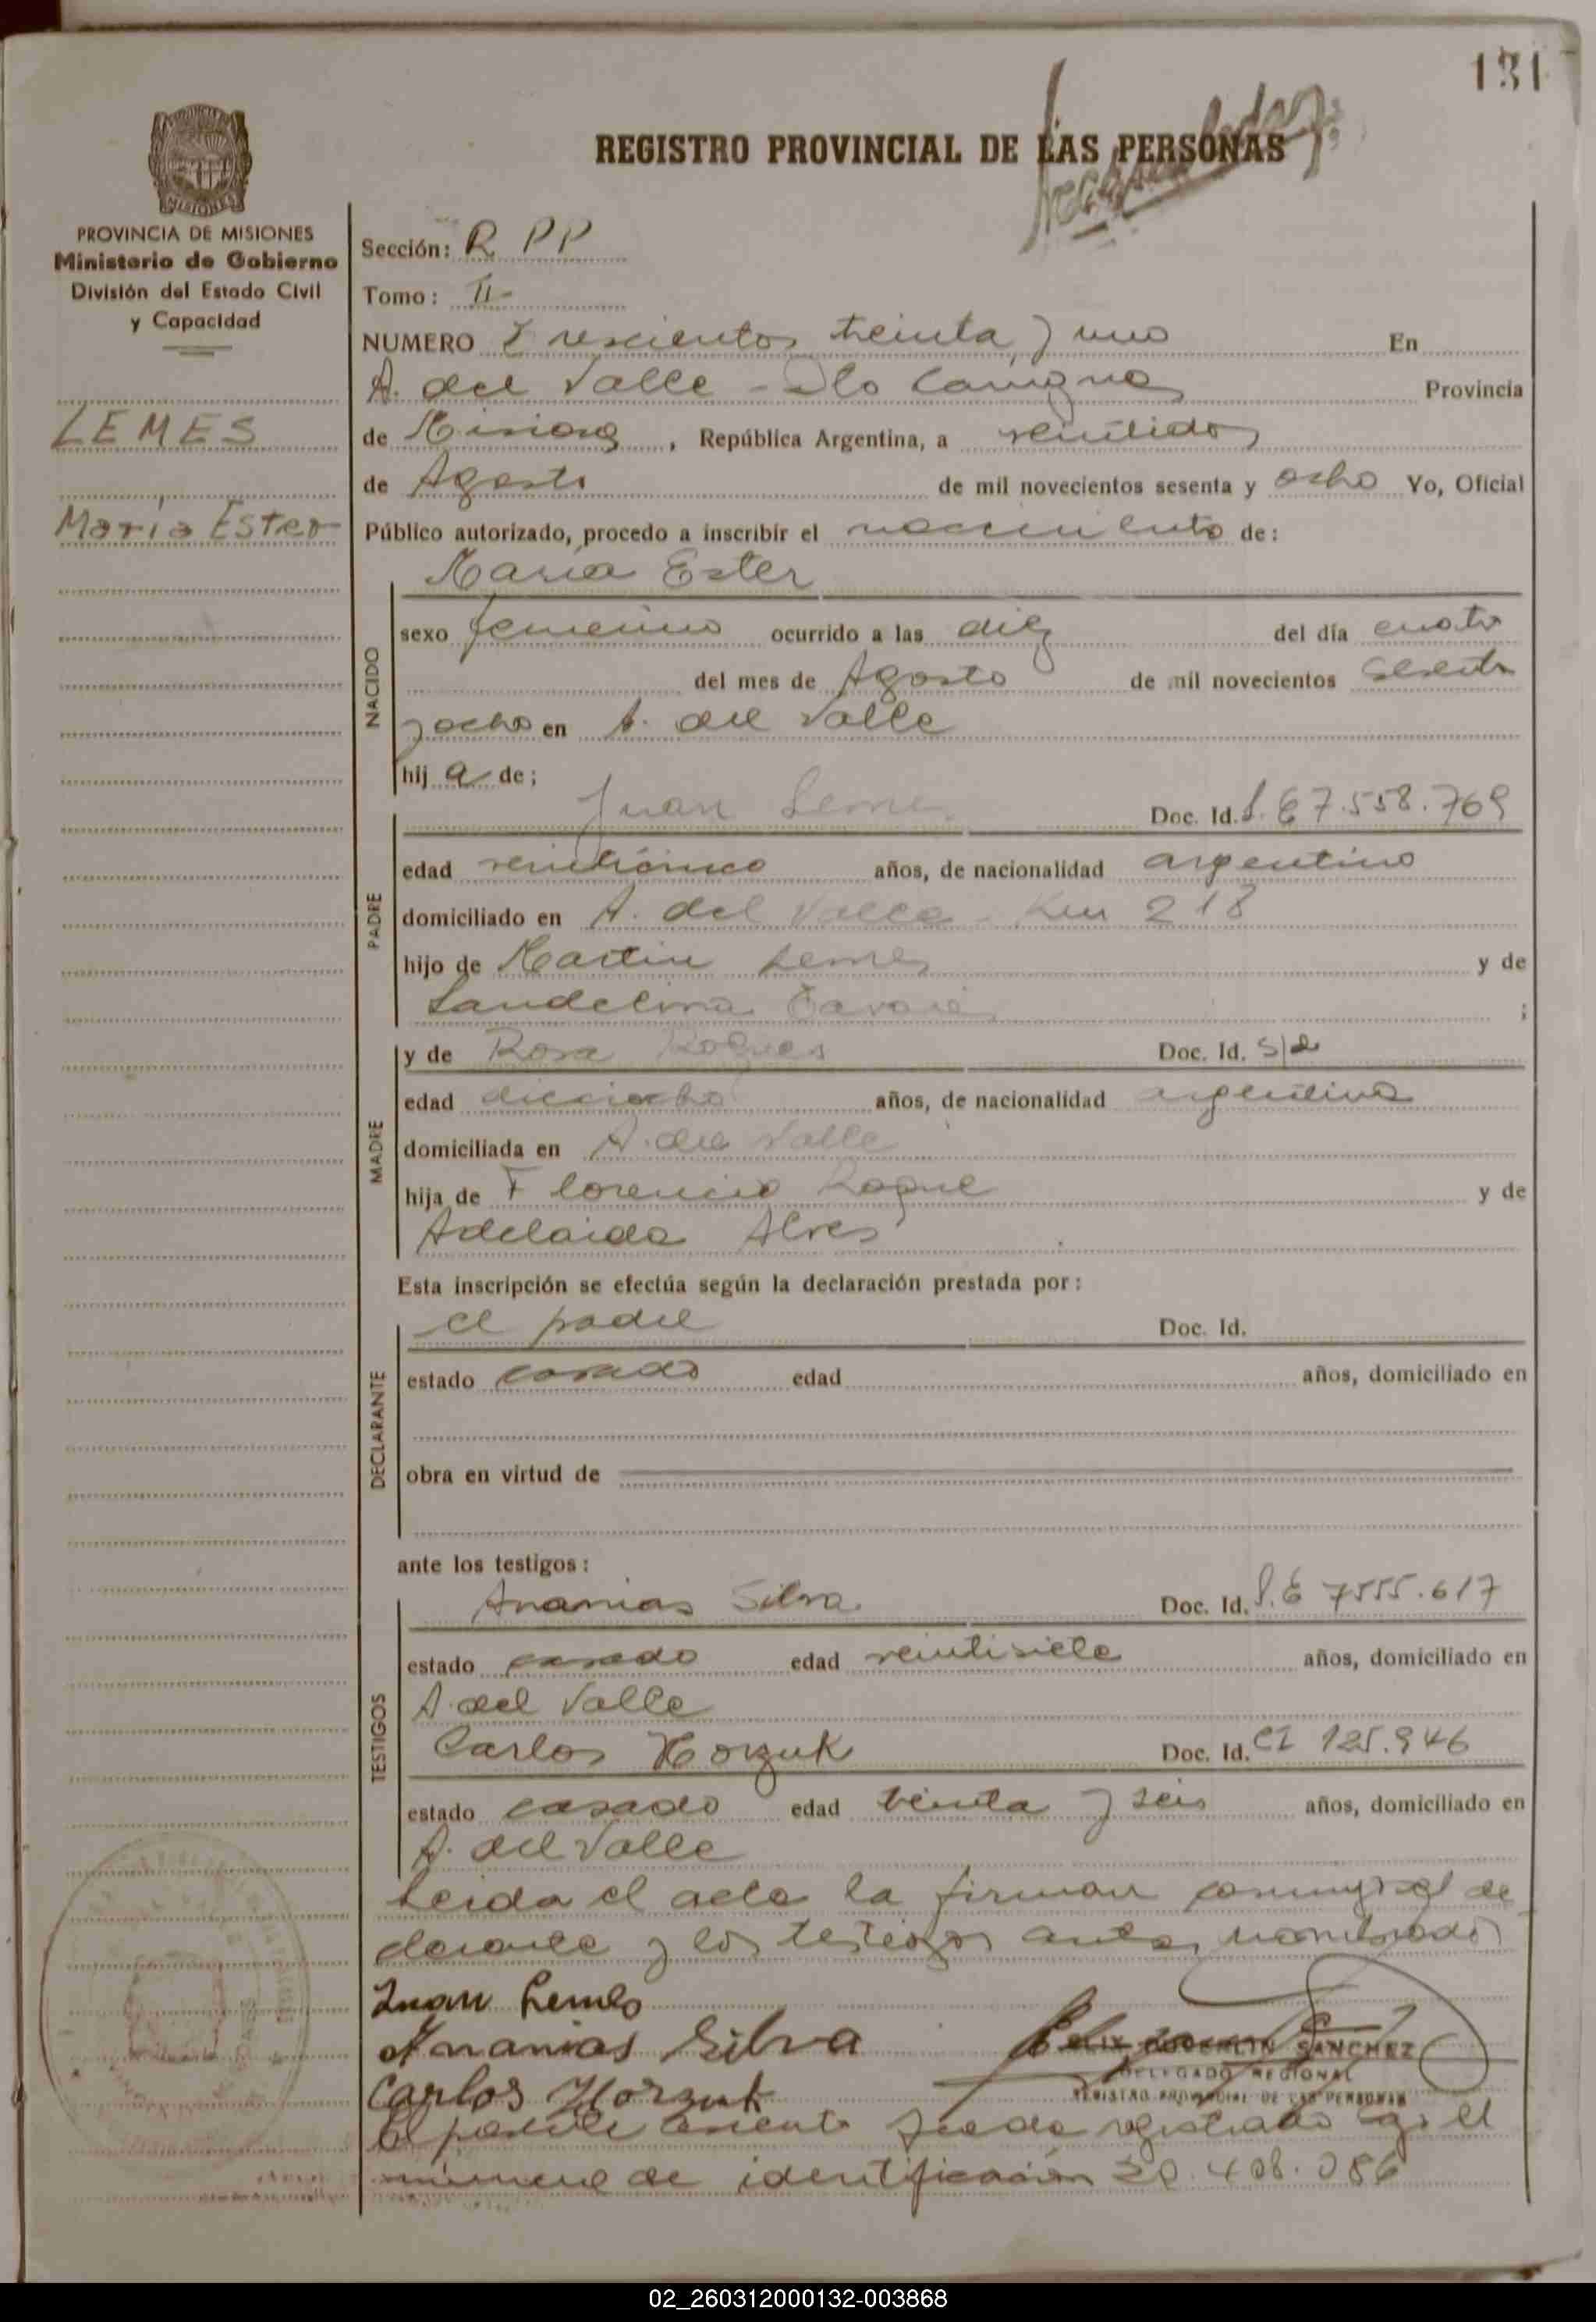 131
REGISTRO PROVINCIAL DE LAS PERSONAS
PROVINCIA DE MISIONES
Ministerio de Gobierno
División del Estado Civil
y Capacidad
MISIONES
LEMES
María Ester
Sección: R PP
Tomo: II
NUMERO Trescientos treinta y uno En
A. del Valle - Dto Cainguas Provincia
de Misiones, República Argentina, a veintidos
de Agosto de mil novecientos sesenta y ocho Yo, Oficial
Público autorizado, procedo a inscribir el nacimiento de:
María Ester
NACIDO
sexo femenino ocurrido a las diez del día cuatro
del mes de Agosto de mil novecientos sesenta
y ocho en A. del Valle
hij a de;
PADRE
Juan Lemes Doc. Id. 67.558.769
edad veinticinco años, de nacionalidad argentino
domiciliado en A. del Valle - Km 218
hijo de Martin Lemes y de
Landelina ;
MADRE
y de Rosa Roques Doc. Id. s/d
edad dieciocho años, de nacionalidad argentina
domiciliada en A. del Valle
hija de Florencio Roque y de
Adelaida Alves
Esta inscripción se efectúa según la declaración prestada por:
DECLARANTE
el padre Doc. Id.
estado casado edad años, domiciliado en
obra en virtud de
ante los testigos:
TESTIGOS
Ananias Silva Doc. Id. L.E 7555.617
estado casado edad veintisiete años, domiciliado en
A. del Valle
Carlos Horzuk Doc. Id. CI 125.946
estado casado edad treinta y seis años, domiciliado en
A. del Valle
Leida el acta la firman conmigo el de
clarante y los testigos antes nombrados
Juan Lemes
Ananias Silva
Carlos Horzuk
FELIX SANCHEZ
DELEGADO REGIONAL
REGISTRO PROVINCIAL DE LAS PERSONAS
El presente asiento queda registrado bajo el
número de identificación 20.408.086
02_260312000132-003868